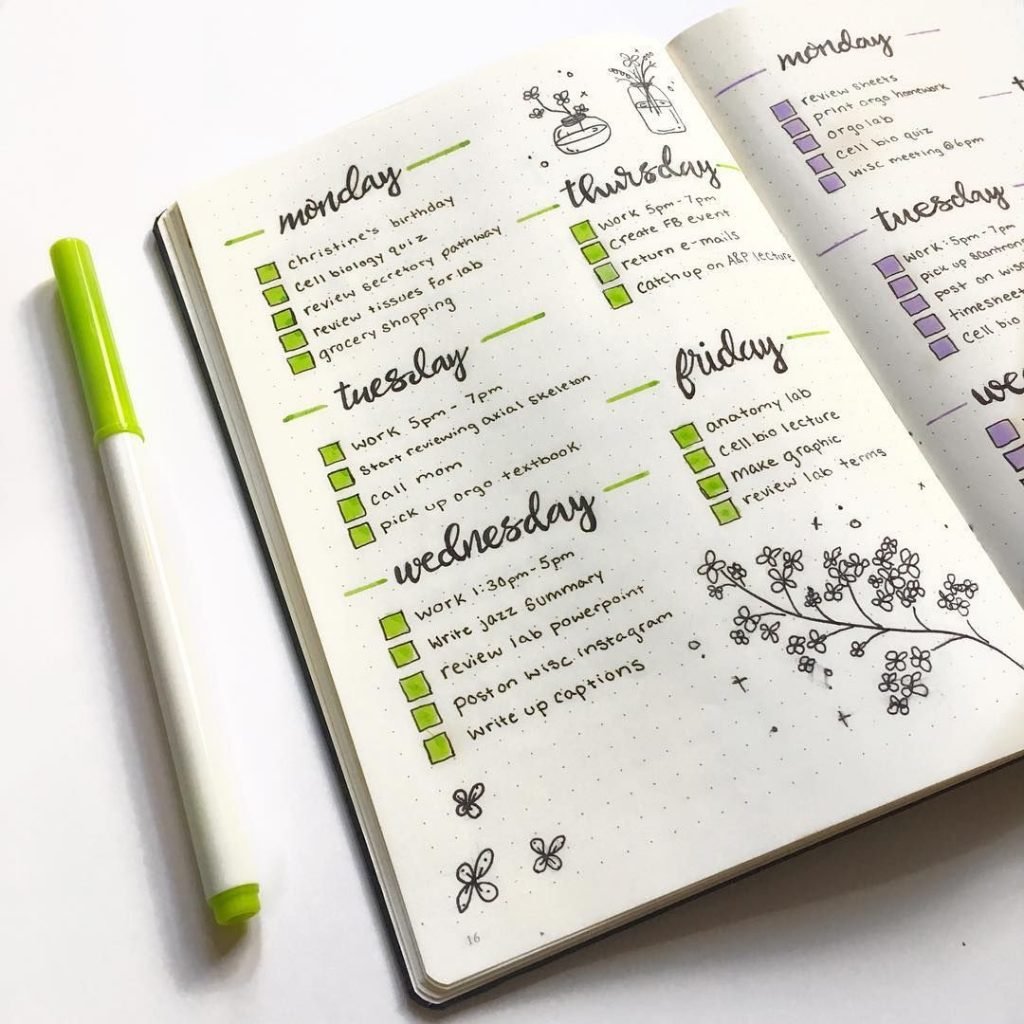 monday
christine's birthday
cell biology quiz
review secretory pathway
review tissues for lab
grocery shopping
tuesday
work 5pm - 7pm
start reviewing axial skeleton
call mom
pick up orgo textbook
wednesday
work 1:30pm - 5pm
write jazz summary
review lab powerpoint
post on wisc instagram
write up captions
thursday
work 5pm - 7pm
create FB event
return e-mails
catch up on A&P lecture
friday
anatomy lab
cell bio lecture
make graphic
review lab terms
16
monday
review sheets
print orgo homework
orgo lab
cell bio quiz
wisc meeting @ 6pm
tuesday
work: 5pm - 7pm
pick up scantron
post on wisc
timesheet
cell bio
we